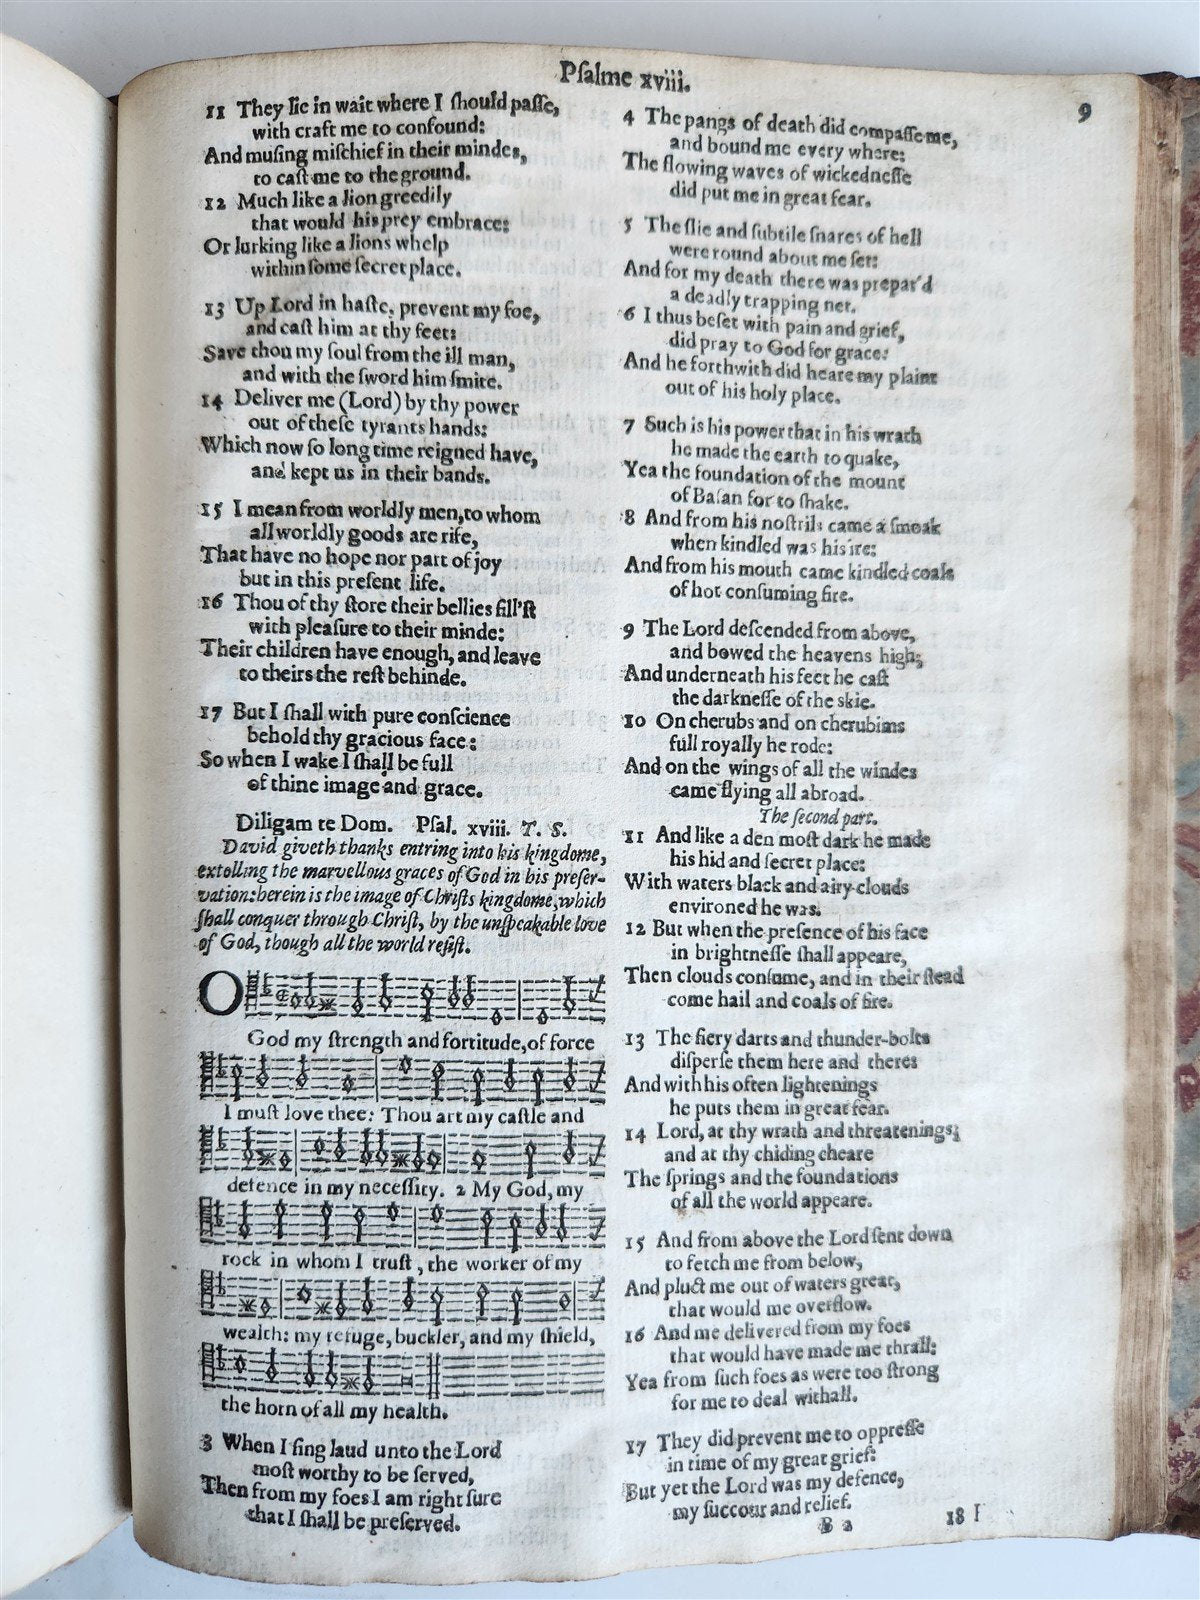 Pſalme xviii.
9
11 They lie in wait where I ſhould paſſe,
with craft me to confound:
And muſing miſchief in their mindes,
to caſt me to the ground.
12 Much like a lion greedily
that would his prey embrace:
Or lurking like a lions whelp
within ſome ſecret place.
13 Up Lord in haſte, prevent my foe,
and caſt him at thy feet:
Save thou my ſoul from the ill man,
and with the ſword him ſmite.
14 Deliver me (Lord) by thy power
out of theſe tyrants hands:
Which now ſo long time reigned have,
and kept us in their bands.
15 I mean from worldly men, to whom
all worldly goods are rife,
That have no hope nor part of joy
but in this preſent life.
16 Thou of thy ſtore their bellies fill'ſt
with pleaſure to their minde:
Their children have enough, and leave
to theirs the reſt behinde.
17 But I ſhall with pure conſcience
behold thy gracious face:
So when I wake I ſhall be full
of thine image and grace.
Diligam te Dom. Pſal. xviii. T. S.
David giveth thanks entring into his kingdome,
extolling the marvellous graces of God in his preſer-
vation: herein is the image of Chriſts kingdome, which
ſhall conquer through Chriſt, by the unſpeakable love
of God, though all the world reſiſt.
O
God my ſtrength and fortitude, of force
I muſt love thee: Thou art my caſtle and
defence in my neceſſity. 2 My God, my
rock in whom I truſt, the worker of my
wealth: my refuge, buckler, and my ſhield,
the horn of all my health.
3 When I ſing laud unto the Lord
moſt worthy to be ſerved,
Then from my foes I am right ſure
that I ſhall be preſerved.
4 The pangs of death did compaſſe me,
and bound me every where:
The flowing waves of wickedneſſe
did put me in great fear.
5 The ſlie and ſubtile ſnares of hell
were round about me ſet:
And for my death there was prepar'd
a deadly trapping net.
6 I thus beſet with pain and grief,
did pray to God for grace:
And he forthwith did heare my plaint
out of his holy place.
7 Such is his power that in his wrath
he made the earth to quake,
Yea the foundation of the mount
of Baſan for to ſhake.
8 And from his noſtrils came a ſmoak
when kindled was his ire:
And from his mouth came kindled coals
of hot conſuming fire.
9 The Lord deſcended from above,
and bowed the heavens high;
And underneath his feet he caſt
the darkneſſe of the skie.
10 On cherubs and on cherubims
full royally he rode:
And on the wings of all the windes
came flying all abroad.
The ſecond part.
11 And like a den moſt dark he made
his hid and ſecret place:
With waters black and airy clouds
environed he was.
12 But when the preſence of his face
in brightneſſe ſhall appeare,
Then clouds conſume, and in their ſtead
come hail and coals of fire.
13 The fiery darts and thunder-bolts
diſperſe them here and there:
And with his often lightenings
he puts them in great fear.
14 Lord, at thy wrath and threatenings;
and at thy chiding cheare
The ſprings and the foundations
of all the world appeare.
15 And from above the Lord ſent down
to fetch me from below,
And pluct me out of waters great,
that would me overflow.
16 And me delivered from my foes
that would have made me thrall:
Yea from ſuch foes as were too ſtrong
for me to deal withall.
17 They did prevent me to oppreſſe
in time of my great grief:
But yet the Lord was my defence,
my ſuccour and relief.
B 2
18